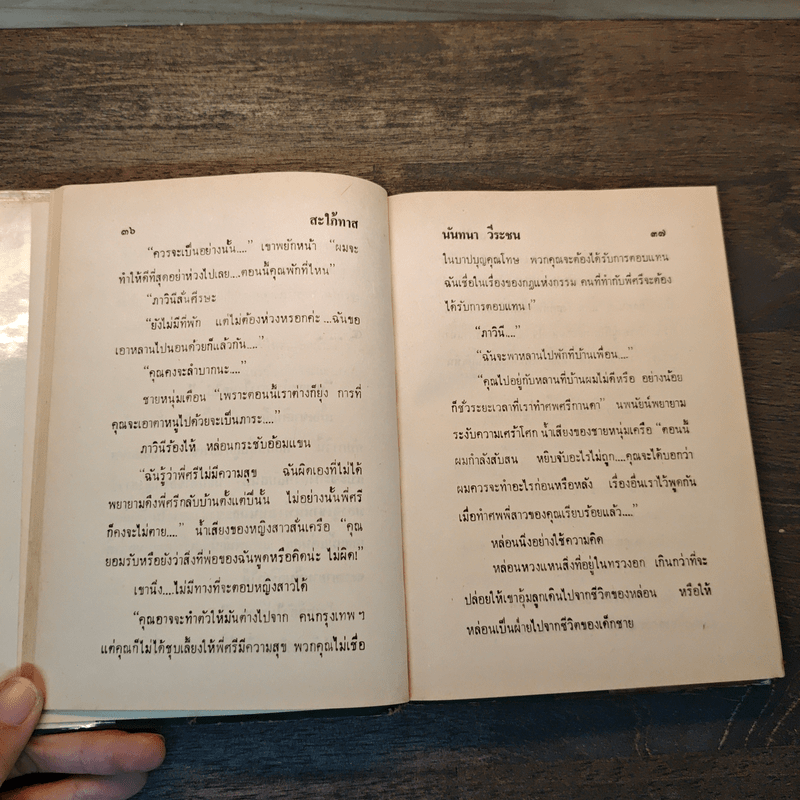 ๓๖ สะใภ้ทาส
“ควรจะเป็นอย่างนั้น....” เขาพยักหน้า “ผมจะ
ทำให้ดีที่สุดอย่าห่วงไปเลย...ตอนนี้คุณพักที่ไหน”
“ภาวินีสั่นศีรษะ
“ยังไม่มีที่พัก แต่ไม่ต้องห่วงหรอกค่ะ ...ฉันขอ
เอาหลานไปนอนด้วยก็แล้วกัน....”
“คุณคงจะลำบากนะ....”
ชายหนุ่มเตือน “เพราะตอนนี้เราต่างก็ยุ่ง การที่
คุณจะเอาตาหนูไปด้วยจะเป็นภาระ....”
ภาวินีร้องไห้ หล่อนกระชับอ้อมแขน
“ฉันรู้ว่าพี่ศรีไม่มีความสุข ฉันผิดเองที่ไม่ได้
พยายามดึงพี่ศรีกลับบ้านตั้งแต่ปีนั้น ไม่อย่างนั้นพี่ศรี
ก็คงจะไม่ตาย....” น้ำเสียงของหญิงสาวสั่นเครือ “คุณ
ยอมรับหรือยังว่าสิ่งที่พ่อของฉันพูดหรือคิดน่ะ ไม่ผิด!”
เขานิ่ง....ไม่มีทางที่จะตอบหญิงสาวได้
“คุณอาจจะทำตัวให้มันต่างไปจาก คนกรุงเทพ ฯ
แต่คุณก็ไม่ได้ชุบเลี้ยงให้พี่ศรีมีความสุข พวกคุณไม่เชื่อ
นันทนา วีระชน ๓๗
ในบาปบุญคุณโทษ พวกคุณจะต้องได้รับการตอบแทน
ฉันเชื่อในเรื่องของกฎแห่งกรรม คนที่ทำกับพี่ศรีจะต้อง
ได้รับการตอบแทน !”
“ภาวินี....”
“ฉันจะพาหลานไปพักที่บ้านเพื่อน....”
“คุณไปอยู่กับหลานที่บ้านผมไม่ดีหรือ อย่างน้อย
ก็ชั่วระยะเวลาที่เราทำศพศรีกานดา” นพนัยน์พยายาม
ระงับความเศร้าโศก น้ำเสียงของชายหนุ่มเครือ “ตอนนี้
ผมกำลังสับสน หยิบจับอะไรไม่ถูก....คุณจะได้บอกว่า
ผมควรจะทำอะไรก่อนหรือหลัง เรื่องอื่นเราไว้พูดกัน
เมื่อทำศพพี่สาวของคุณเรียบร้อยแล้ว....”
หล่อนนิ่งอย่างใช้ความคิด
หล่อนหวงแหนสิ่งที่อยู่ในทรวงอก เกินกว่าที่จะ
ปล่อยให้เขาอุ้มลูกเดินไปจากชีวิตของหล่อน หรือให้
หล่อนเป็นฝ่ายไปจากชีวิตของเด็กชาย